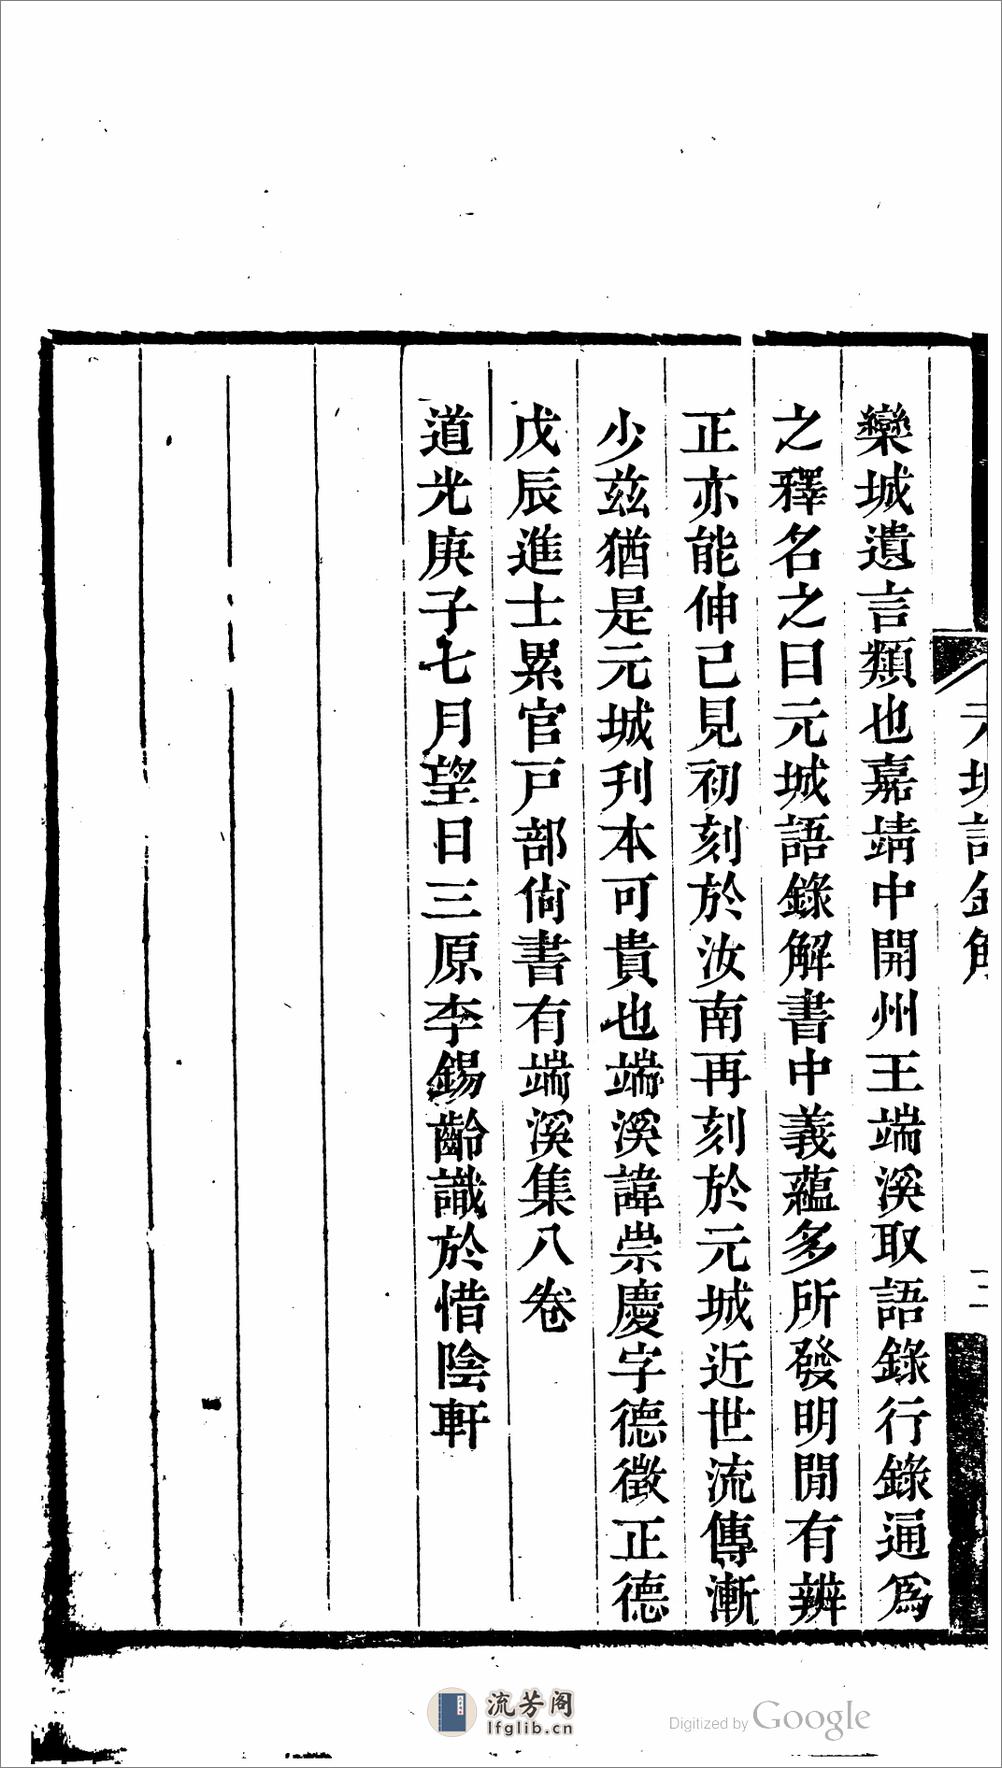 欒城遺言類也嘉靖中開州王端溪取語錄行錄通爲
之釋名之曰元城語錄解書中義蘊多所發明閒有辨
正亦能伸已見初刻於汝南再刻於元城近世流傳漸
少兹猶是元城刋本可貴也端溪諱崇慶字德徵正德
戊辰進士累官戸部尙書有端溪集八卷
道光庚子七月望日三原李錫齡識於惜陰軒
流芳阁
lfglib.cn
Digitized by Google